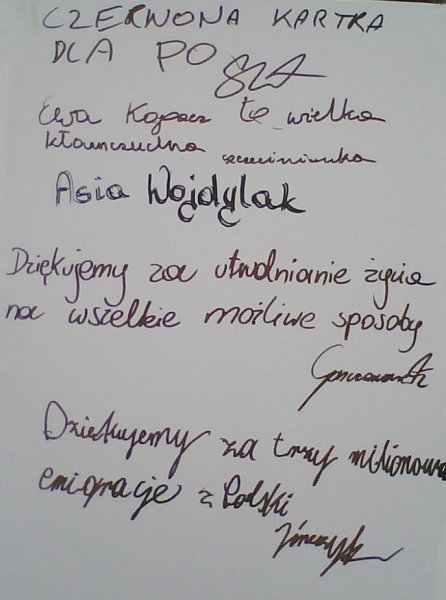 CZERWONA KARTKA
DLA PO
Ewa Kopacz tę wielka
kłamczucha szczeciniunka
Asia Wojdylak
Dziękujemy za utrudnianie życia
na wszelkie możliwe sposoby
Dziękujemy za trzy milionową
emigracje z Polski